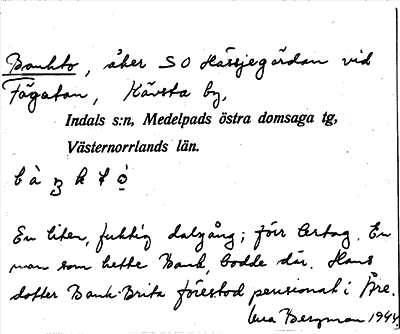 Bankto, åker SO Hässjegården vid
Fägatan, Kävsta by,
Indals s:n, Medelpads östra domsaga tg,
Västernorrlands län.
En liten, fuktig dalgång; förr ärtåg. En
man som hette Bank, bodde där. Hans
dotter Bank-Brita förestod pensionat i Åre.
Bergman 1944